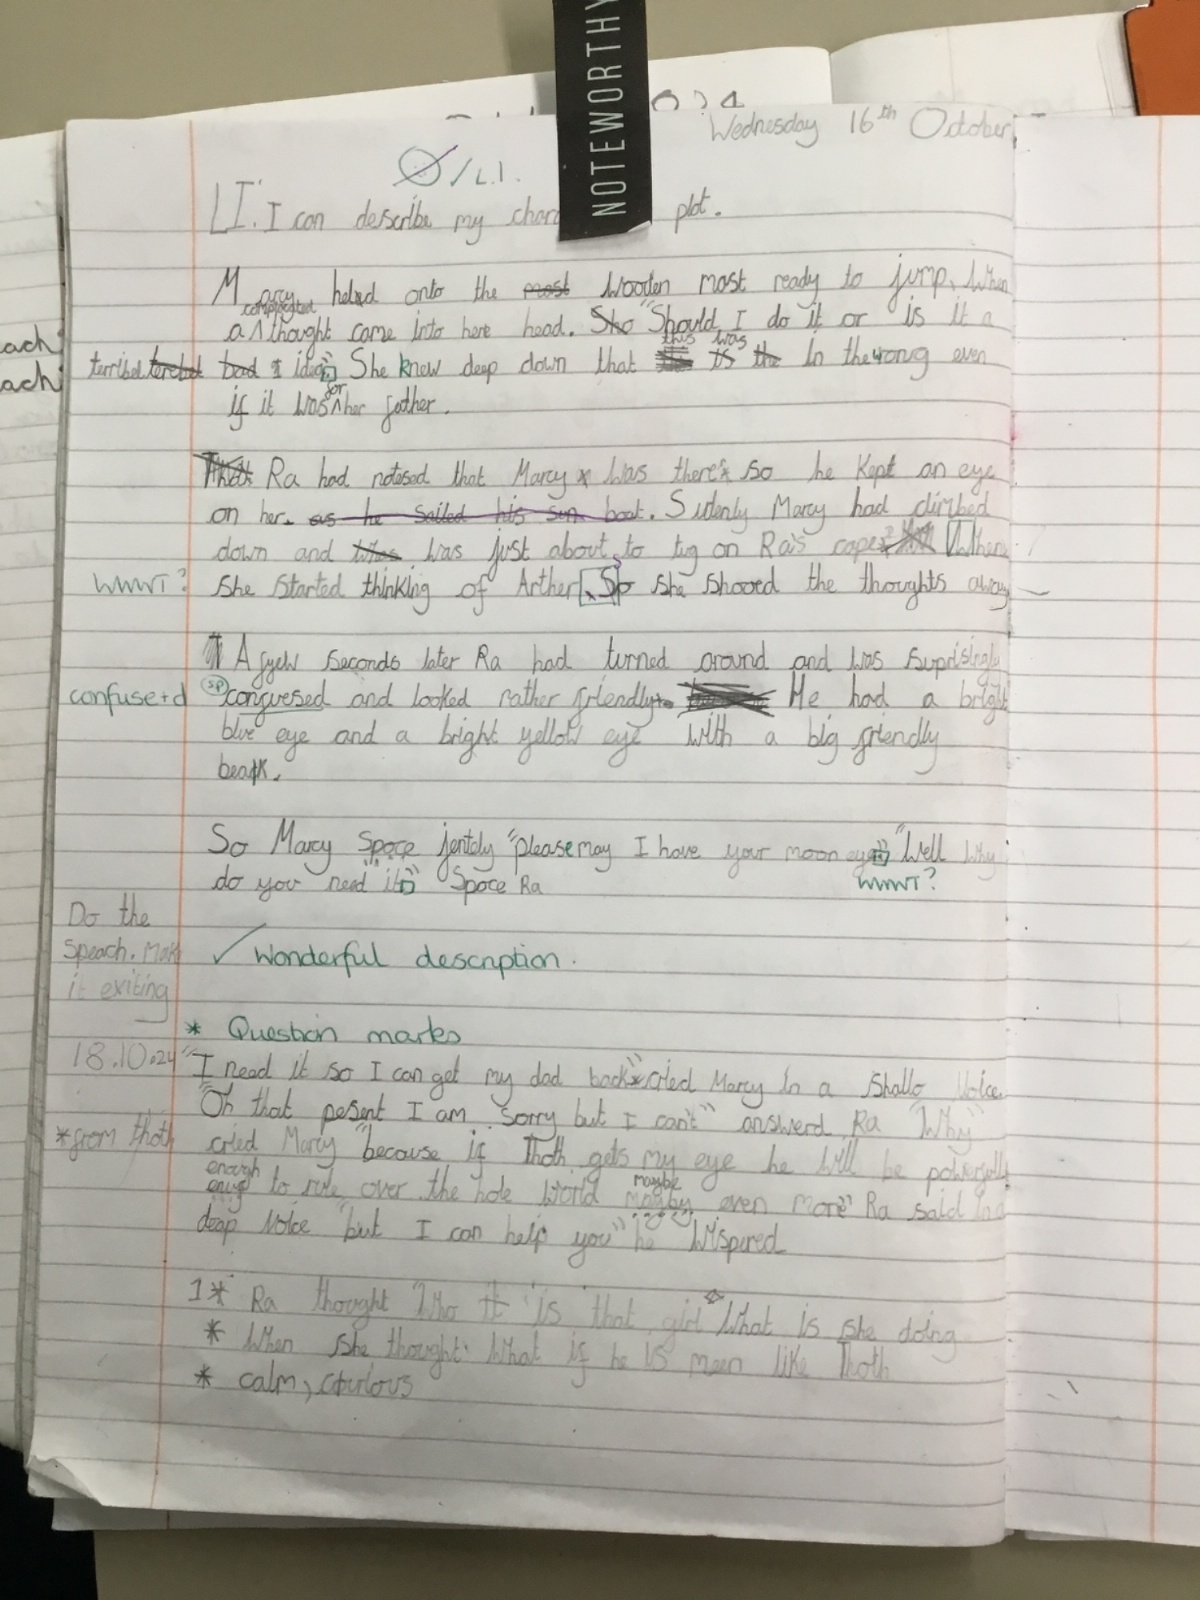 NOTEWORTHY
Wednesday 16th October
/L.I.
LI. I can describe my plot.
Marcy helad onto the most wooden mast ready to jump, When
complicated
a thought came into here head. She "Should I do it or is it a
this was
terribel bad idea She knew deep down that is the in the wrong even
or
if it was her father.
ach
ach
That Ra had notesed that Marcy was there so he Kept an eye
on her. as he sailed his sun boat. Sudenly Marcy had climbed
down and was just about to tug on Ra's cape When
WWWT? She started thinking of Arther. So she shooed the thoughts away
A few seconds later Ra had turned around and was suprisingly
confuse+d sp confuesed and looked rather friendly. He had a bright
blue eye and a bright yellow eye with a big friendly
beak.
So Marcy Spoce jently "please may I have your moon eye" "Well Why
do you need it" Spoce Ra WWWT?
Do the
Speach. Make
it exiting
✓ Wonderful description.
* Question marks
18.10.24 "I need it so I can get my dad back" cried Marcy in a Shallo Voice.
"Oh that pesent I am sorry but I can't" answerd Ra "Why"
*from thoth cried Marcy "because if Thoth gets my eye he Will be powerfull
enough maybe
to rule over the hole World even more" Ra said in a
deap Voice "but I can help you" he Wispired
1* Ra thought Who is that girl What is she doing
* When she thought What if he is mean like Thoth
* calm,